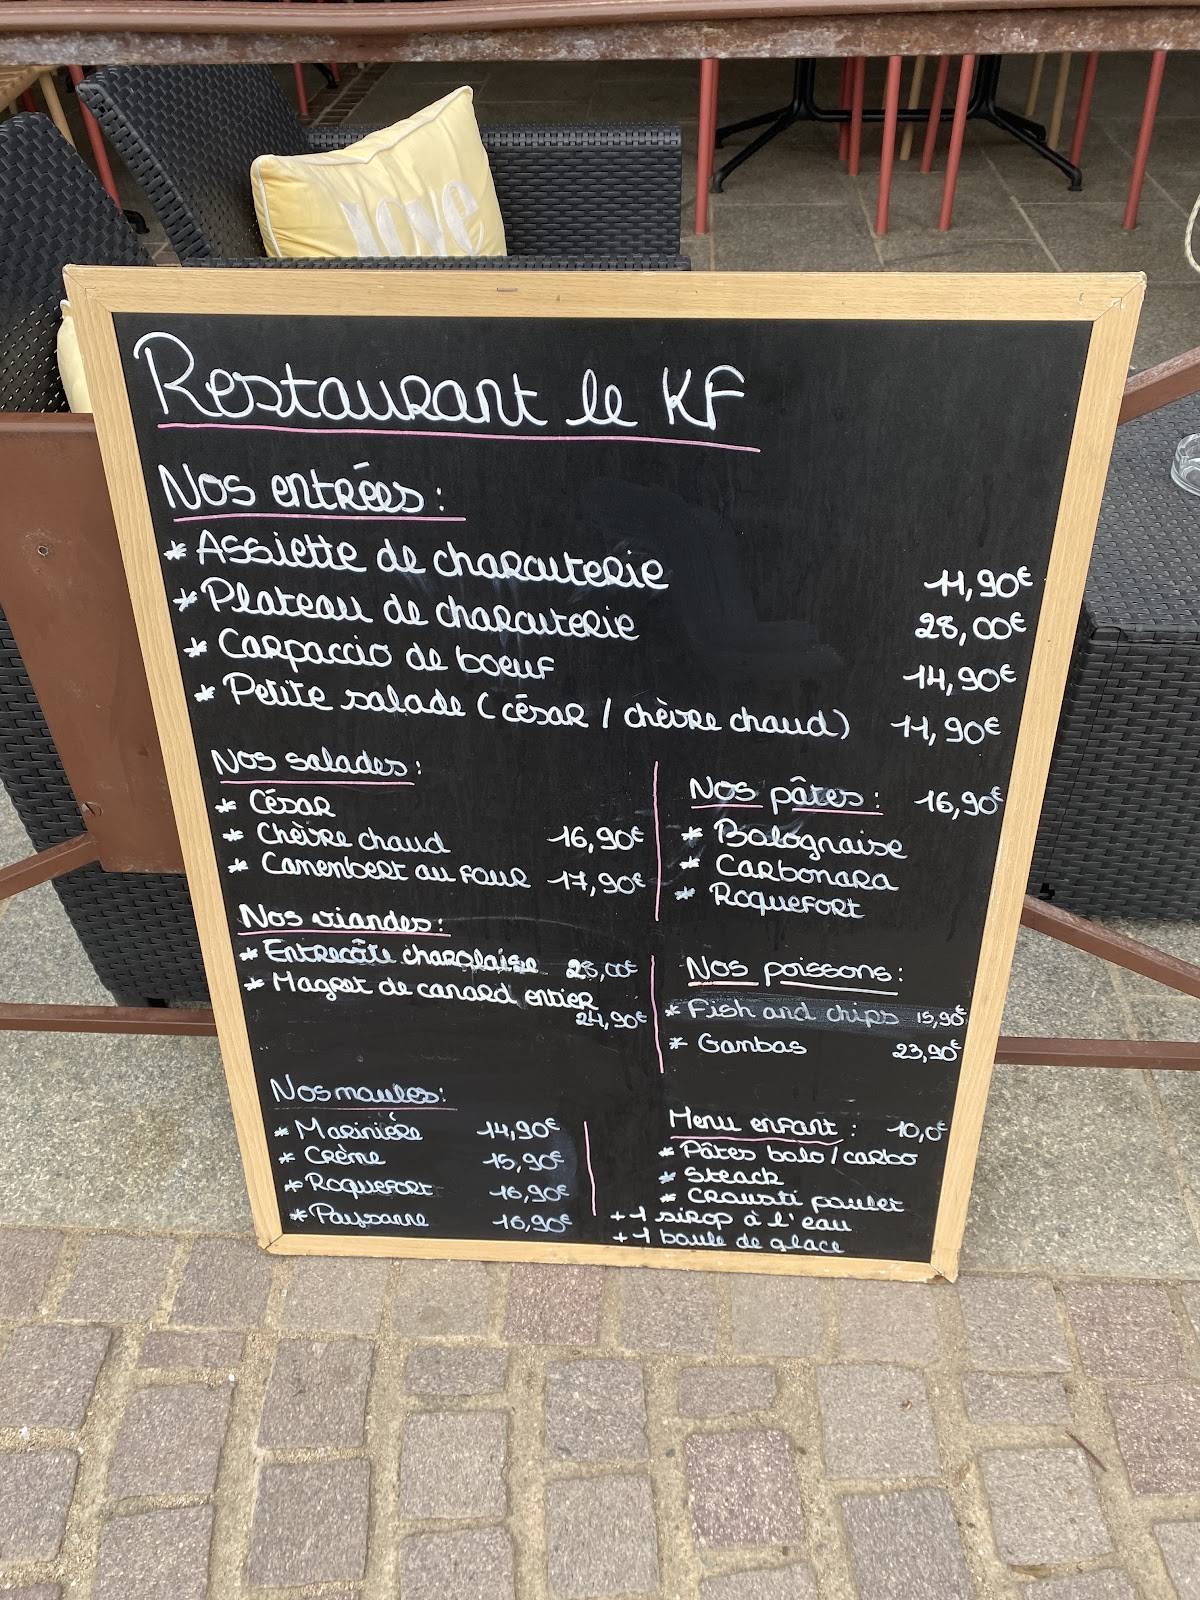 love
Restaurant le KF
Nos entrées :
* Assiette de charcuterie 11,90€
* Plateau de charcuterie 28,00€
* Carpaccio de boeuf 14,90€
* Petite salade (césar / chèvre chaud) 11,90€
Nos salades :
* César
* Chèvre chaud 16,90€
* Camembert au four 17,90€
Nos viandes :
* Entrecôte charolaise 28,00€
* Magret de canard entier
24,90€
Nos moules :
* Marinière 14,90€
* Crème 15,90€
* Roquefort 16,90€
* Paysanne 16,90€
Nos pâtes : 16,90€
* Bolognaise
* Carbonara
* Roquefort
Nos poissons :
* Fish and chips 15,90€
* Gambas 23,90€
Menu enfant : 10,0€
* Pâtes bolo / carbo
* Steack
* Crousti poulet
+ 1 sirop à l'eau
+ 1 boule de glace